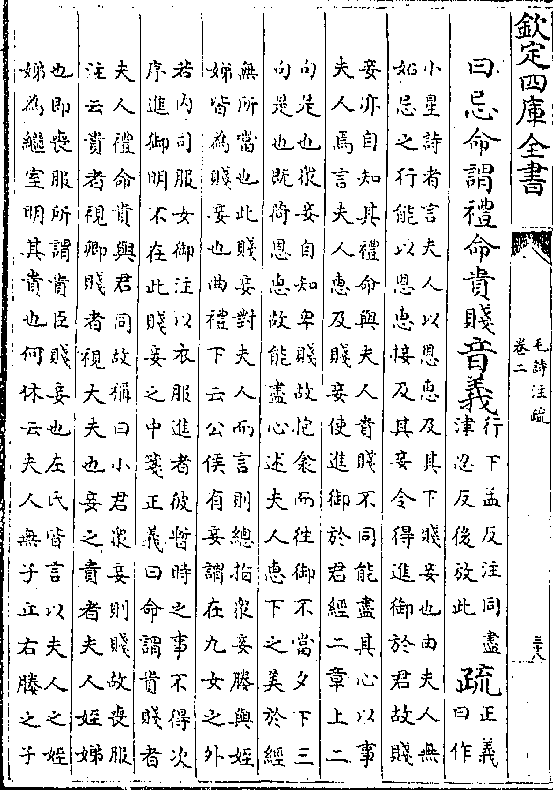 欽定四庫全書
毛詩注疏
卷二
三十八
曰忌命謂禮命貴賤音義
行下孟反注同盡
津忍反後放此
疏
正義
曰作
小星詩者言夫人以恩惠及其下賤妾也由夫人無
妬忌之行能以恩惠接及其妾令得進御於君故賤
妾亦自知其禮命與夫人貴賤不同能盡其心以事
夫人焉言夫人惠及賤妾使進御於君經二章上二
句是也衆妾自知卑賤故抱衾而往御不當夕下三
句是也既荷恩惠故能盡心述夫人惠下之美於經
無所當也此賤妾對夫人而言則總指衆妾媵與姪
娣皆為賤妾也曲禮下云公侯有妾謂在九女之外
若内司服女御注以衣服進者彼暫時之事不得次
序進御明不在此賤妾之中箋正義曰命謂貴賤者
夫人禮命貴與君同故稱曰小君衆妾則賤故喪服
注云貴者視卿賤者視大夫也妾之貴者夫人姪娣
也即喪服所謂貴臣賤妾也左氏皆言以夫人之姪
娣為繼室明其貴也何休云夫人無子立右媵之子